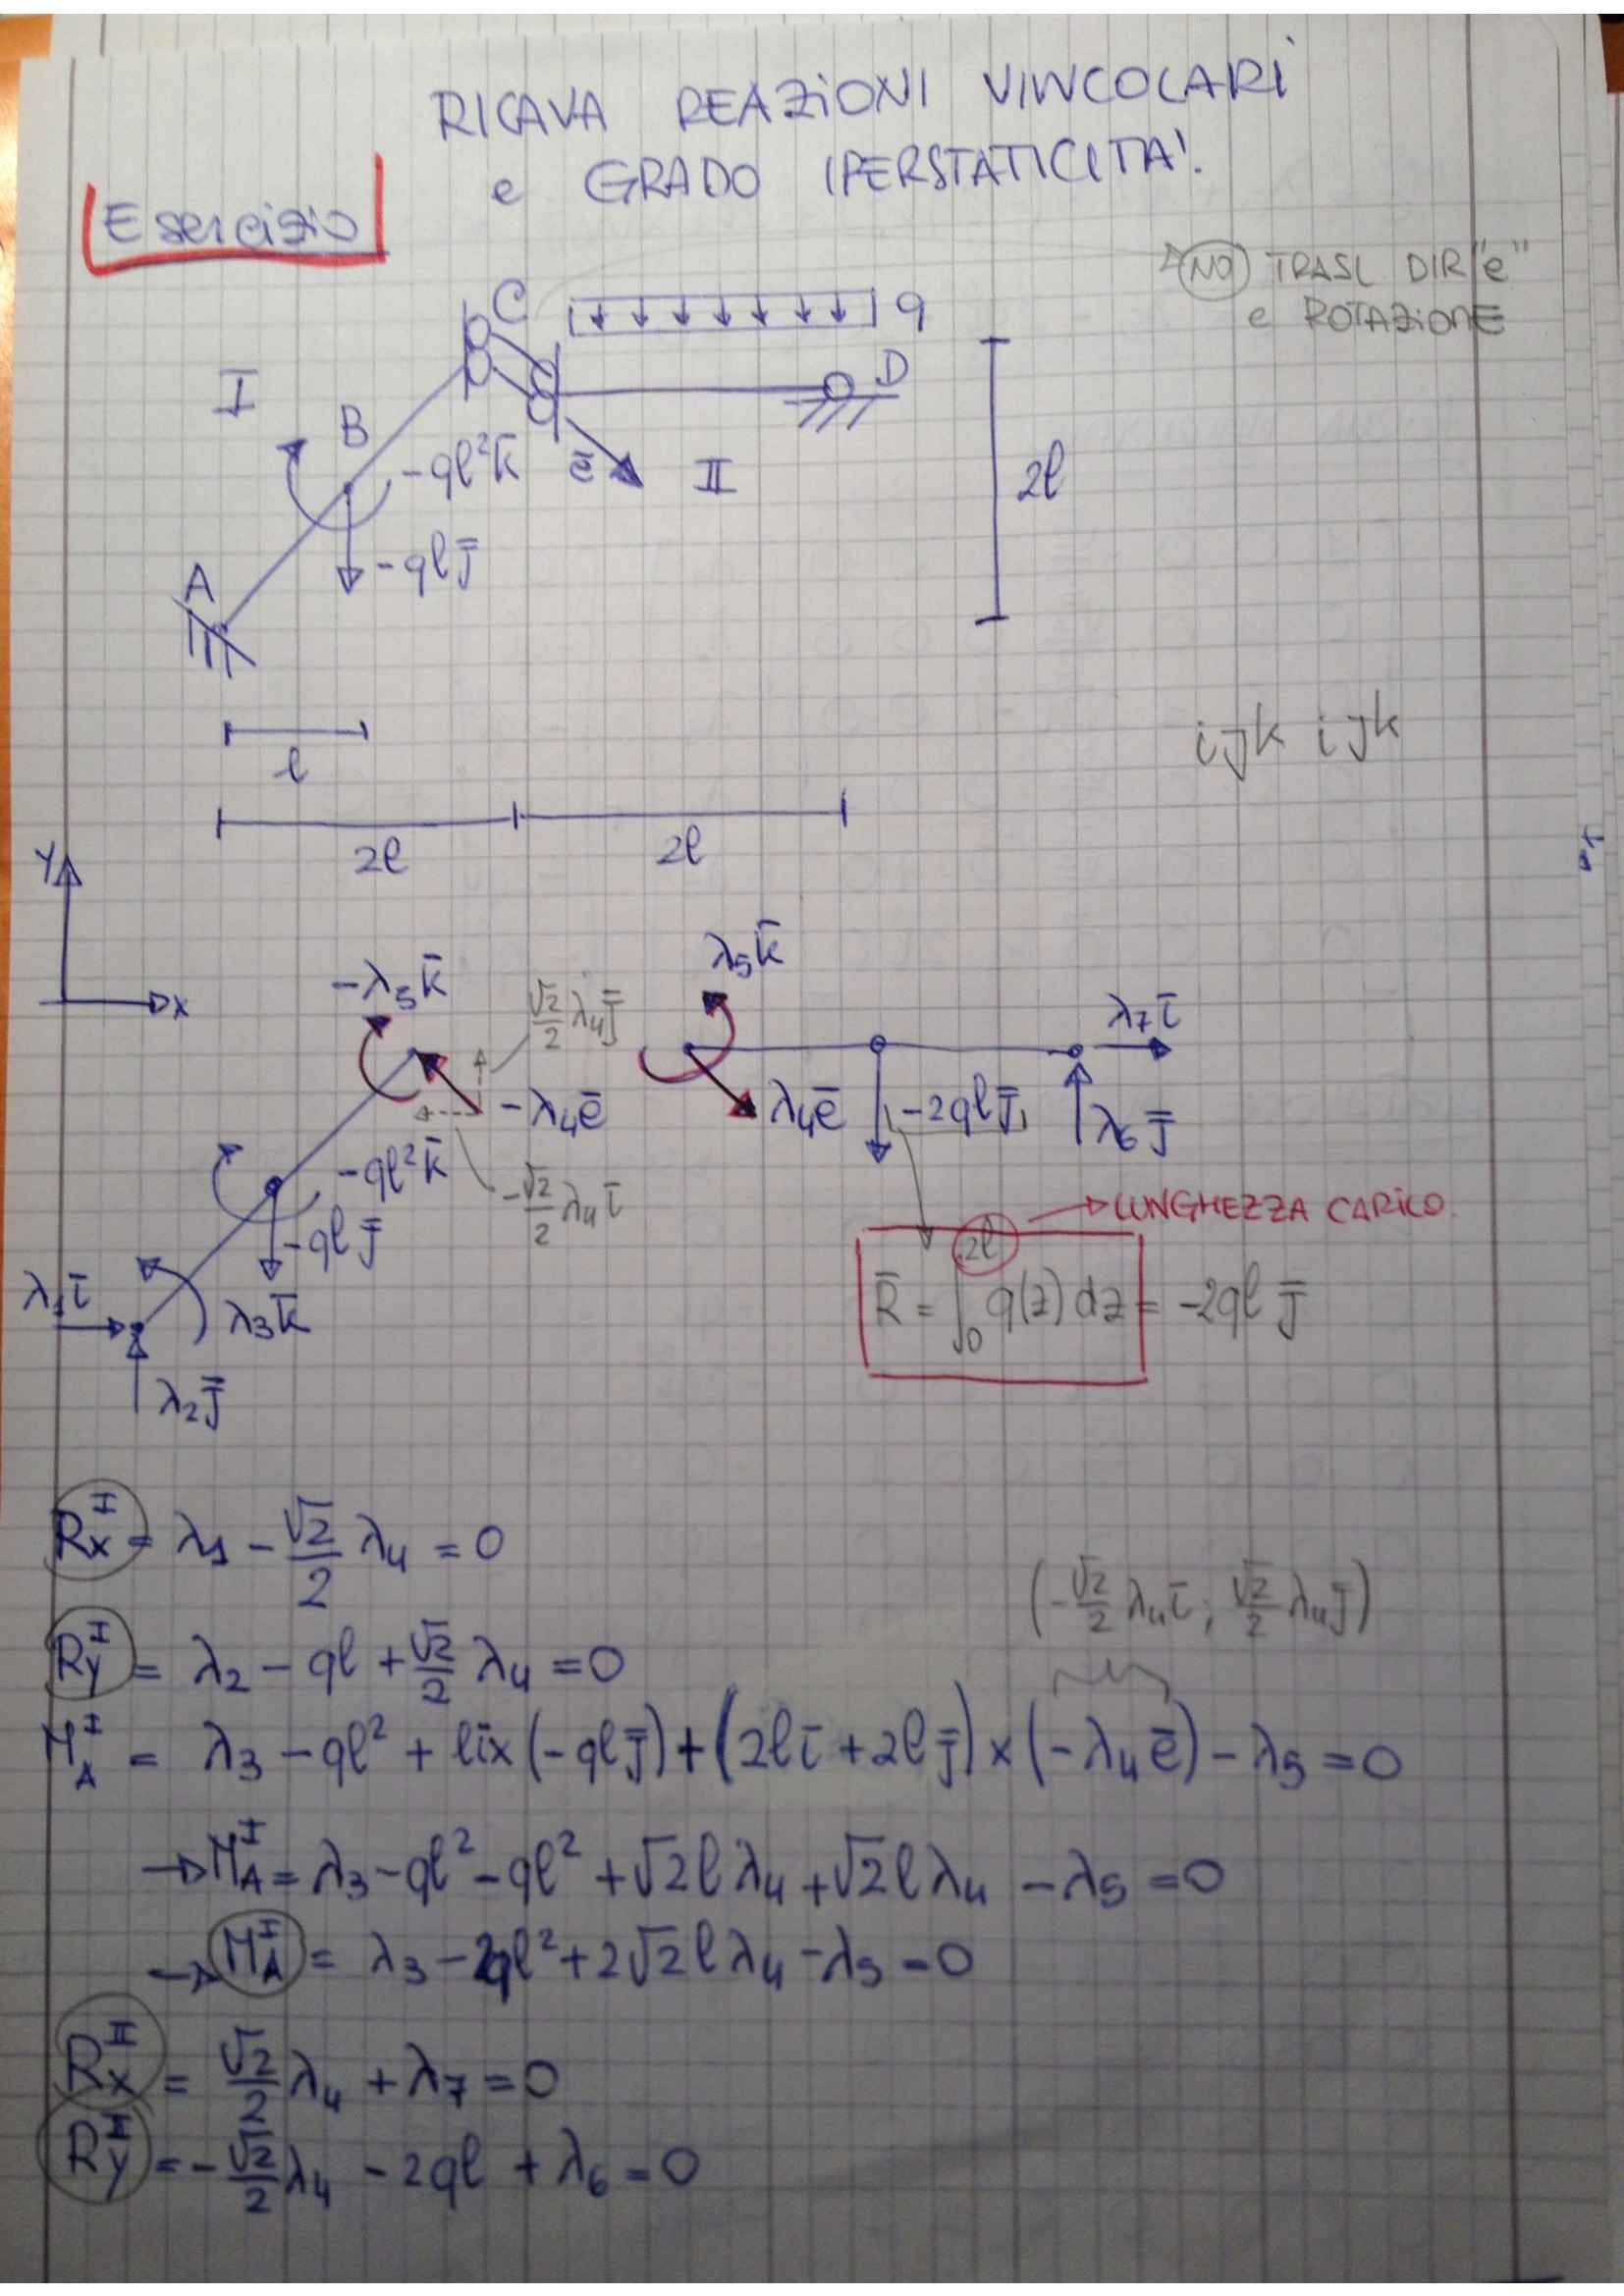 RICAVA REAZIONI VINCOLARI
e GRADO IPERSTATICITA'.
Esercizio
NO TRASL DIR "e"
e ROTAZIONE
C
q
D
I
B
-ql²k̄
ē
II
2l
A
-ql j̄
ijk ijk
l
2l 2l
Y
x
-λ₅k̄
√2/2 λ₄j̄
-λ₄ē
-√2/2 λ₄ī
-ql²k̄
-ql j̄
λ₁ī
λ₃k̄
λ₂j̄
λ₅k̄
λ₇ī
λ₄ē
-2ql j̄
λ₆j̄
LUNGHEZZA CARICO
R̄ = ∫₀^2l q(z) dz = -2ql j̄
Rx^I = λ₁ - √2/2 λ₄ = 0
(-√2/2 λ₄ī ; √2/2 λ₄j̄)
Ry^I = λ₂ - ql + √2/2 λ₄ = 0
M_A^I = λ₃ - ql² + lī x (-ql j̄) + (2lī + 2l j̄) x (-λ₄ē) - λ₅ = 0
→ M_A^I = λ₃ - ql² - ql² + √2 l λ₄ + √2 l λ₄ - λ₅ = 0
→ M_A^I = λ₃ - 2ql² + 2√2 l λ₄ - λ₅ = 0
Rx^II = √2/2 λ₄ + λ₇ = 0
Ry^II = -√2/2 λ₄ - 2ql + λ₆ = 0